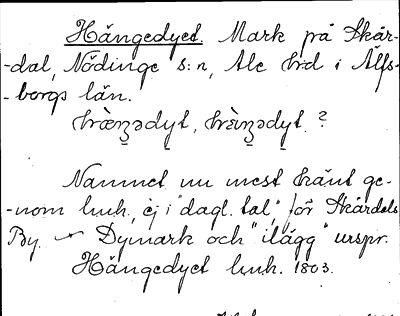 Hängedyet. Mark på Skår-
-dal, Nödinge s:n, Ale hrd i Älfs-
-borgs län.
Namnet nu mest känt ge-
-nom luh., ej i "dagl. tal", för Skårdals
By. Dymark och "ilägg" urspr.
Hängedyet luh. 1803.